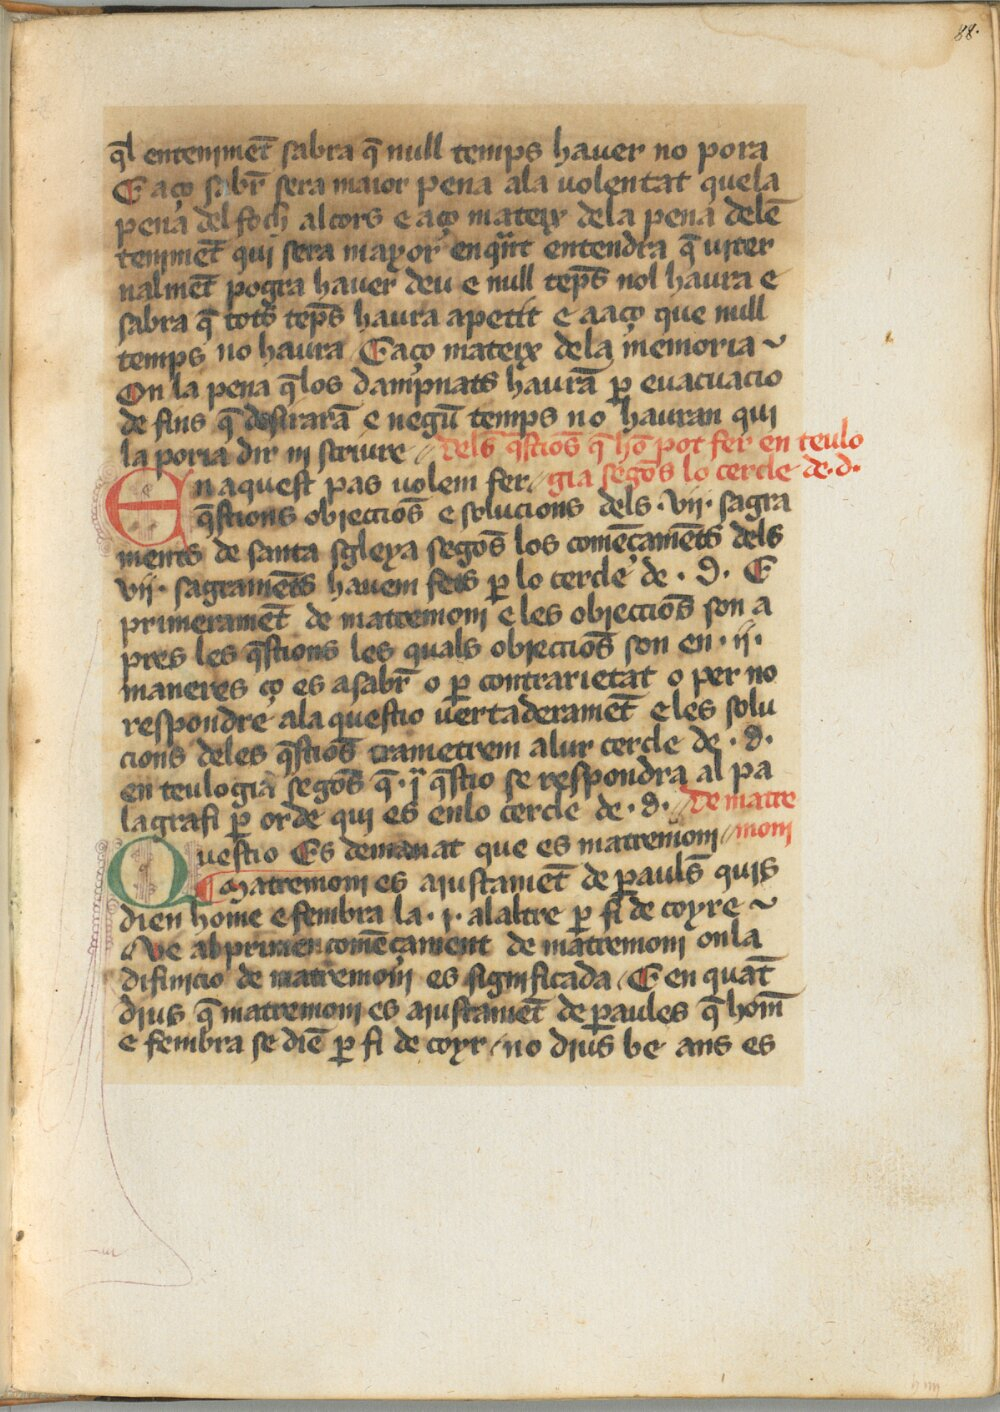 88.
q̄l entenimēt sabra q̄ null temps hauer no pora
E aço sabr̄ sera maior pena ala uolentat quela
pena del foch al cors e aço mateix dela pena delē
tenimēt qui sera mayor en quāt entendra q̄ uiter
nalmēt pogra hauer deu e null tēps nol haura e
sabra q̄ tots tēps haura apetit e aaço que null
temps no haura E aço mateix dela memoria ~
On la pena q̄ los dampnats haurā ꝑ euacuacio
de fins q̄ desirarā e negū temps no hauran qui
la poria dir ni scriure // dels q̄stiōs q̄ hō pot fer en teulo
En aquest pas uolem fer // gia segōs lo cercle de .d.
q̄stions obiecciōs e solucions dels .vij. sagra
ments de santa sgleya segōs los comēçamēts dels
vij. sagramēts hauem fets ꝑ lo cercle de .d. E
primeramēt de matremoni e les obiecciōs son a
pres les q̄stions les quals obiecciōs son en .ij.
maneres ço es asabr̄ o ꝑ contrarietat o per no
respondre ala questio uertaderamēt e les solu
cions deles q̄stiōs trametrem alur cercle de .d.
en teulogia segōs q̄ .jª. q̄stio se respondra al pa
lagrafi ꝑ orde qui es enlo cercle de .d. // de matre
Questio Es demanat que es matremoni // moni
¶ Matremoni es aiustamēt de ꝑauls quis
dien home e fembra la .j. alaltre ꝑ fi de coyre ~
Que ab primer comēçament de matremoni on la
difinicio de matremoni es significada E en quāt
dius q̄ matremoni es aiustamēt de ꝑaules q̄ hom̄
e fembra se diē ꝑ fi de coyr / no dius be ans es